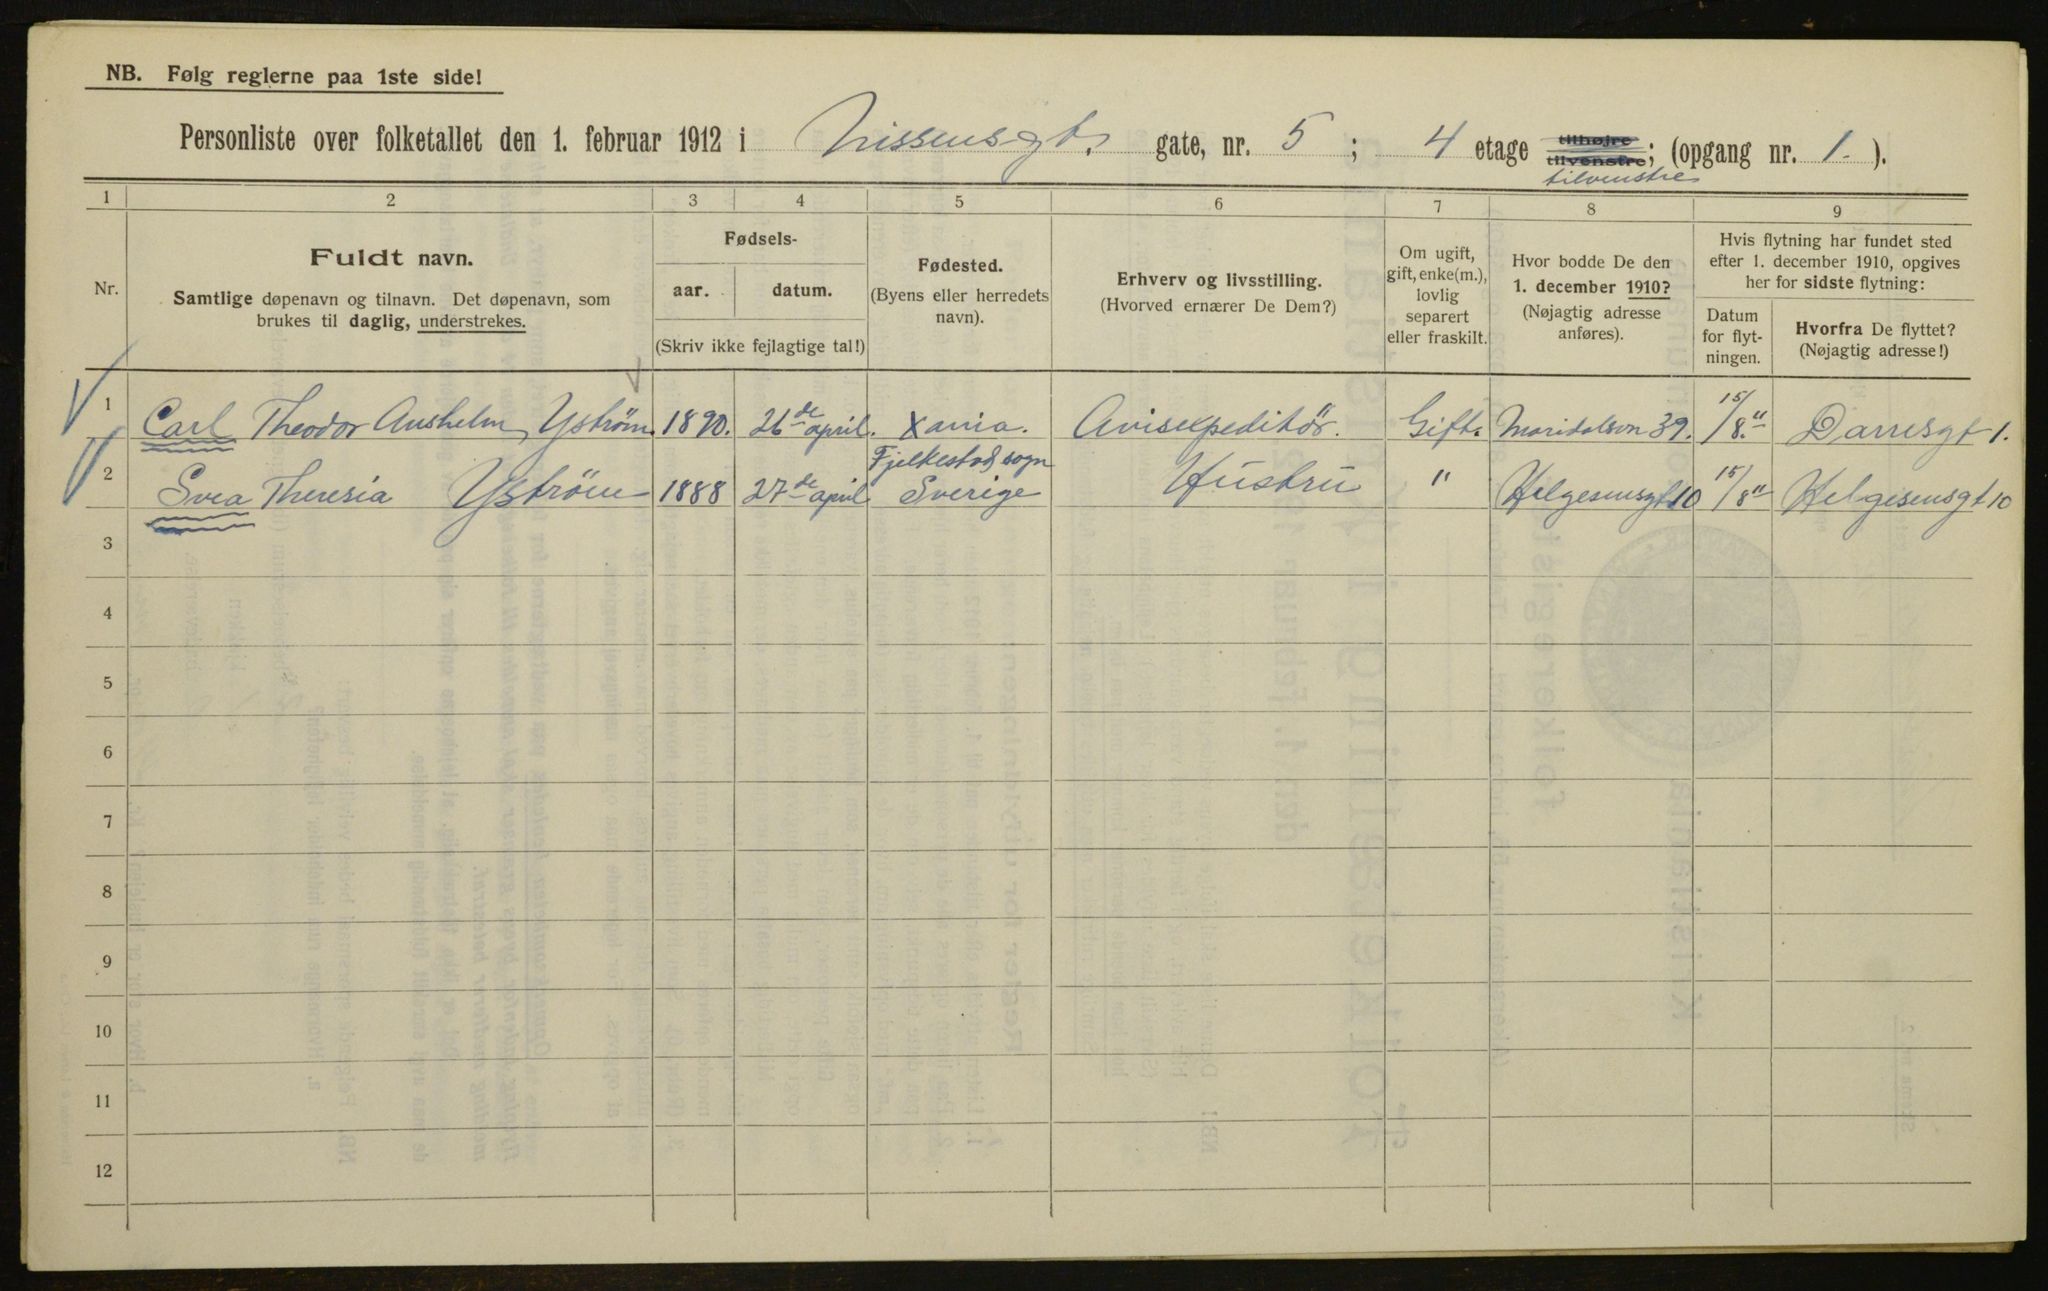 NB. Følg reglerne paa 1ste side!
Personliste over folketallet den 1. februar 1912 i Nissensgt. gate, nr. 5 ; 4 etage tilhøjre tilvenstre; (opgang nr. 1. ).
tilvenstre
1 2 3 4 5 6 7 8 9
Nr.
Fuldt navn.
Samtlige døpenavn og tilnavn. Det døpenavn, som
brukes til daglig, understrekes.
Fødsels-
aar. datum.
(Skriv ikke fejlagtige tal!)
Fødested.
(Byens eller herredets
navn).
Erhverv og livsstilling.
(Hvorved ernærer De Dem?)
Om ugift,
gift, enke(m.),
lovlig
separert
eller fraskilt.
Hvor bodde De den
1. december 1910?
(Nøjagtig adresse
anføres).
Hvis flytning har fundet sted
efter 1. december 1910, opgives
her for sidste flytning:
Datum
for flyt-
ningen.
Hvorfra De flyttet?
(Nøjagtig adresse!)
1 Carl Theodor Anshelm Yström. 1890. 26de april. Xania. Avisexpeditör. Gift. Maridalsvn 39. 15/8.11 Darresgt 1.
2 Svea Theresia Yström 1888 27de april Fjelkestad sogn Sverige Hustru " Helgesensgt 10 15/8 11 Helgesensgt 10
3
4
5
6
7
8
9
10
11
12